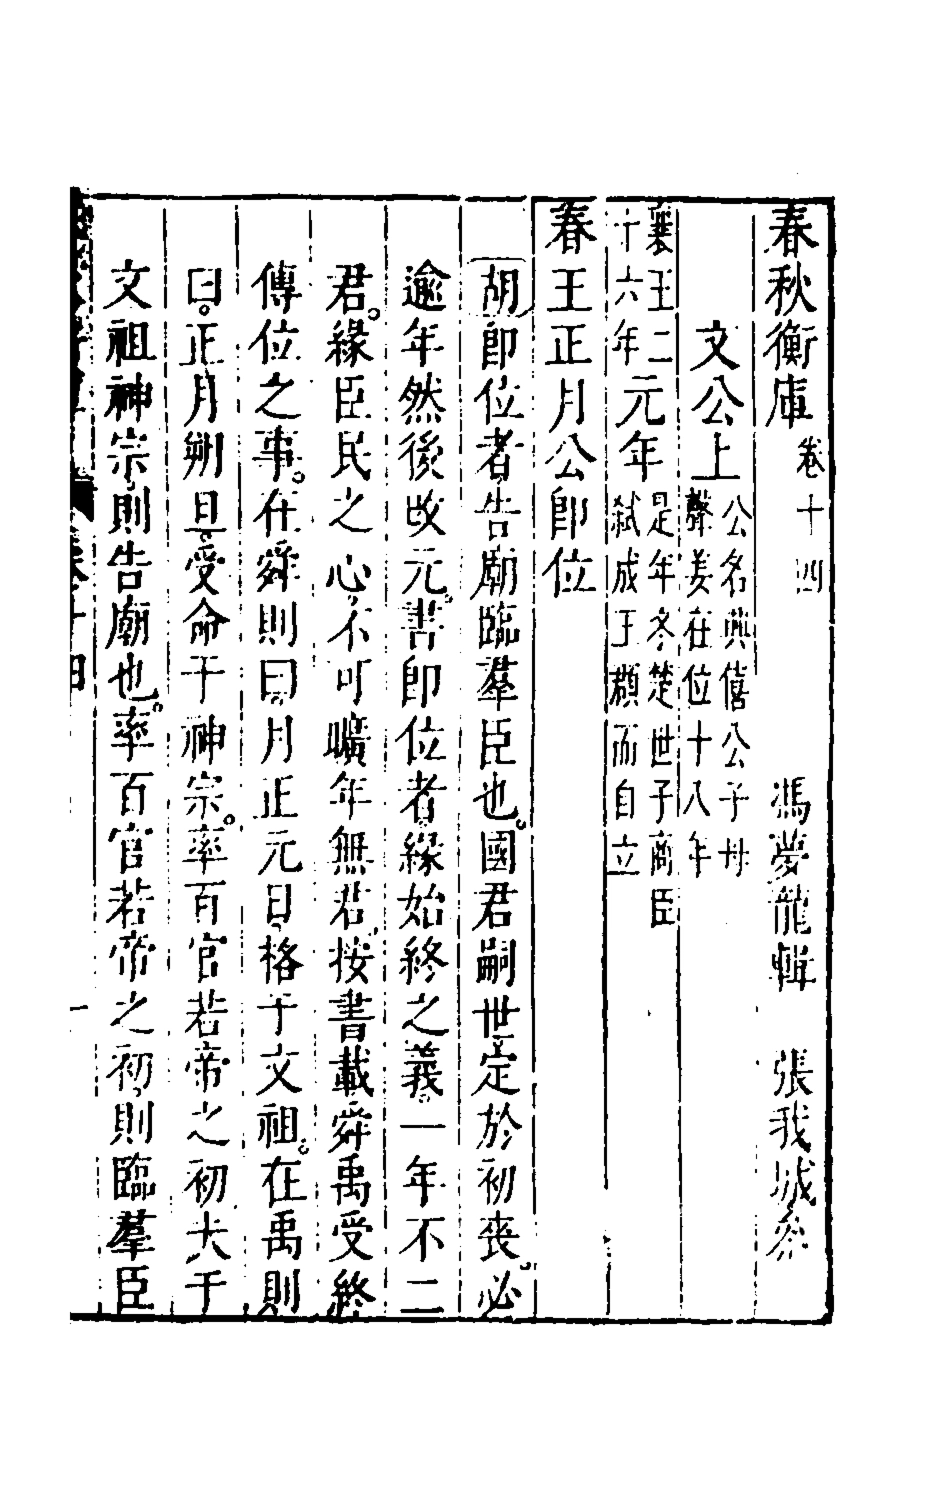 春秋衡庫 卷十四 馮夢龍輯 張我城參
文公上 公名興僖公子母聲姜在位十八年
襄王二十六年 元年 是年冬楚世子商臣弒成王頵而自立
春王正月公即位
胡即位者告廟臨羣臣也。國君嗣世定於初喪。必
逾年然後改元。書即位者緣始終之義。一年不二
君。緣臣民之心不可曠年無君。按書載舜禹受終
傳位之事。在舜則曰。月正元日格于文祖。在禹則
曰。正月朔旦受命于神宗。率百官若帝之初。大于
文祖神宗則告廟也。率百官若帝之初則臨羣臣
卷十四
一